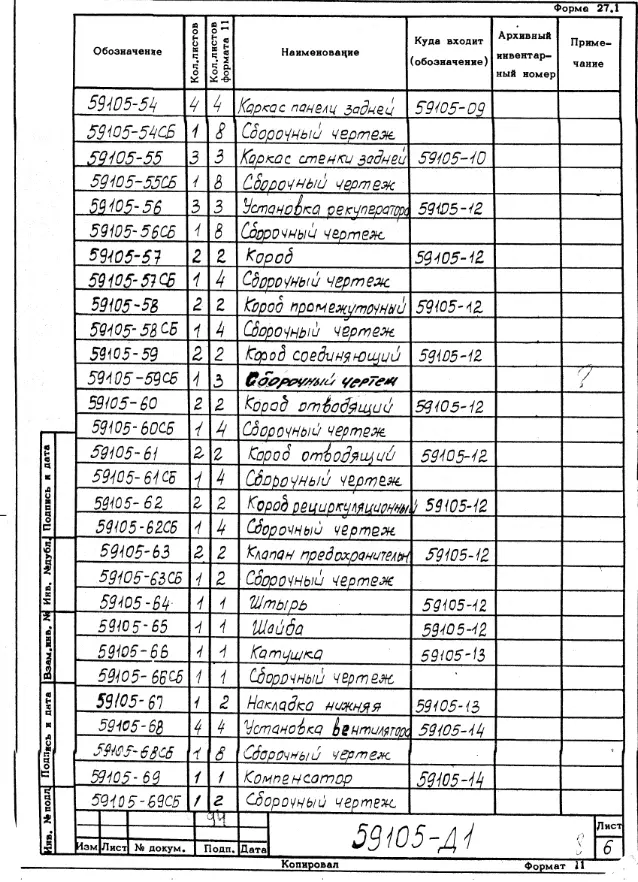 Форма 27.1
Обозначение Кол.листов Кол.листов формата 11 Наименование Куда входит (обозначение) Архивный инвентарный номер Примечание
59105-54 4 4 Каркас панели задней 59105-09
59105-54СБ 1 8 Сборочный чертеж
59105-55 3 3 Каркас стенки задней 59105-10
59105-55СБ 1 8 Сборочный чертеж
59105-56 3 3 Установка рекуператора 59105-12
59105-56СБ 1 8 Сборочный чертеж
59105-57 2 2 Короб 59105-12
59105-57СБ 1 4 Сборочный чертеж
59105-58 2 2 Короб промежуточный 59105-12
59105-58СБ 1 4 Сборочный чертеж
59105-59 2 2 Короб соединяющий 59105-12
59105-59СБ 1 3 Сборочный чертеж ?
59105-60 2 2 Короб отводящий 59105-12
59105-60СБ 1 4 Сборочный чертеж
59105-61 2 2 Короб отводящий 59105-12
59105-61СБ 1 4 Сборочный чертеж
59105-62 2 2 Короб рециркуляционный 59105-12
59105-62СБ 1 4 Сборочный чертеж
59105-63 2 2 Клапан предохранительн 59105-12
59105-63СБ 1 2 Сборочный чертеж
59105-64 1 1 Штырь 59105-12
59105-65 1 1 Шайба 59105-12
59105-66 1 1 Катушка 59105-13
59105-66СБ 1 1 Сборочный чертеж
59105-67 1 2 Накладка нижняя 59105-13
59105-68 4 4 Установка вентилятора 59105-14
59105-68СБ 1 8 Сборочный чертеж
59105-69 1 1 Компенсатор 59105-14
59105-69СБ 1 2 Сборочный чертеж
Подпись и дата
Инв. №дубл.
Взам.инв. №
Подпись и дата
Инв. № подл
94
59105-Д1
Лист
6
Изм Лист № докум. Подп. Дата
Копировал Формат 11